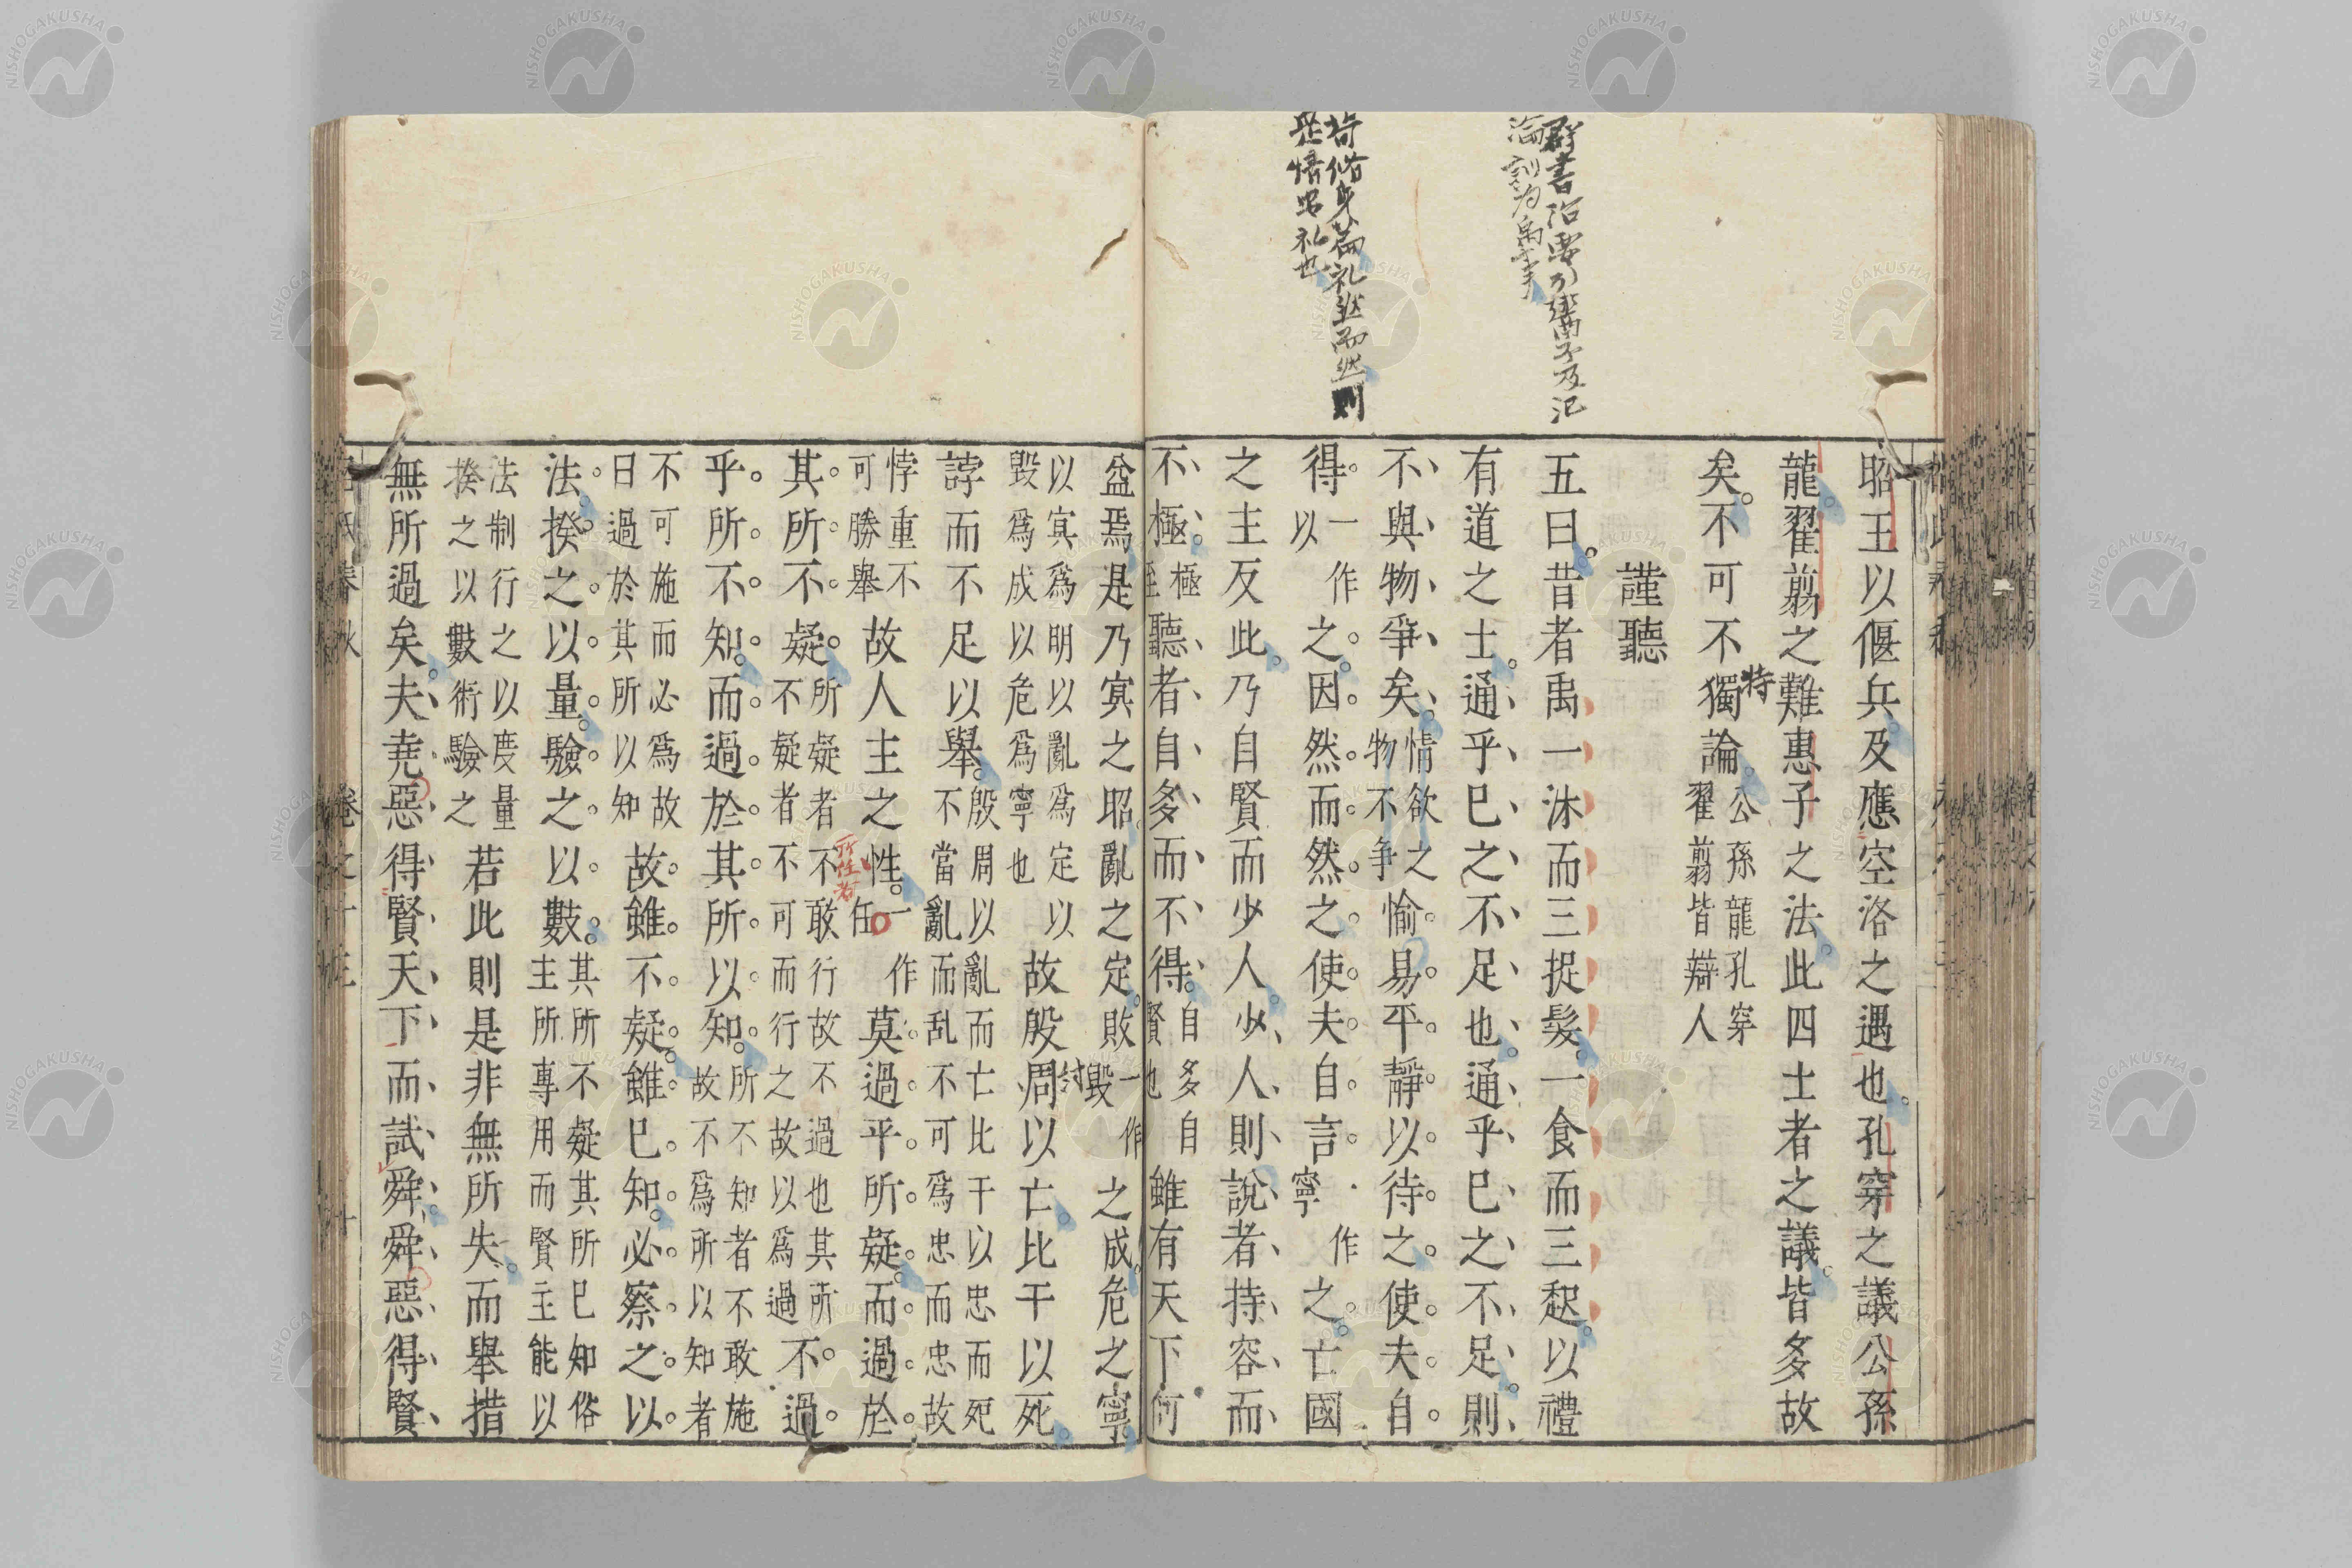 群書治要引鬻子及氾
論訓為禹事
荀修身篇礼然而然則
是情安礼也
昭王以偃兵及應空洛之遇也孔穿之議公孫
龍翟翦之難惠子之法此四士者之議皆多故
矣不可不獨論公孫龍孔穿翟翦皆辯人
特
謹聽
五曰昔者禹一沐而三捉髮一食而三起以禮
有道之士通乎已之不足也通乎已之不足則
不與物爭矣情欲之物不爭愉易平靜以待之使夫自
得一作以之因然而然之使夫自言一作寧之亡國
之主反此乃自賢而少人少人則說者持容而
不極極至聽者自多而不得自多自賢也雖有天下何
益焉是乃冥之昭亂之定敗一作毀之成危之寧
以冥爲明以亂爲定以毀爲成以危爲寧也故殷周以亡比干以死
紂
誖而不足以舉殷周以亂而亡比干以忠而死不當亂而乱不可爲忠而忠故
悖重不可勝舉故人主之性一作任莫過乎所疑而過於
所性者
其所不疑所疑者不敢行故不過也其所不疑者不可而行之故以爲過不過
乎所不知而過於其所以知所不知者不敢施故不爲所以知者
不可施而必爲故曰過於其所以知故雖不疑雖已知必察之以
法揆之以量驗之以數其所不疑其所已知俗主所專用而賢主能以
法制行之以度量揆之以數術驗之若此則是非無所失而舉措
無所過矣夫堯惡得賢天下而試舜舜惡得賢
呂氏春秋
卷之十三
十
NISHOGAKUSHA